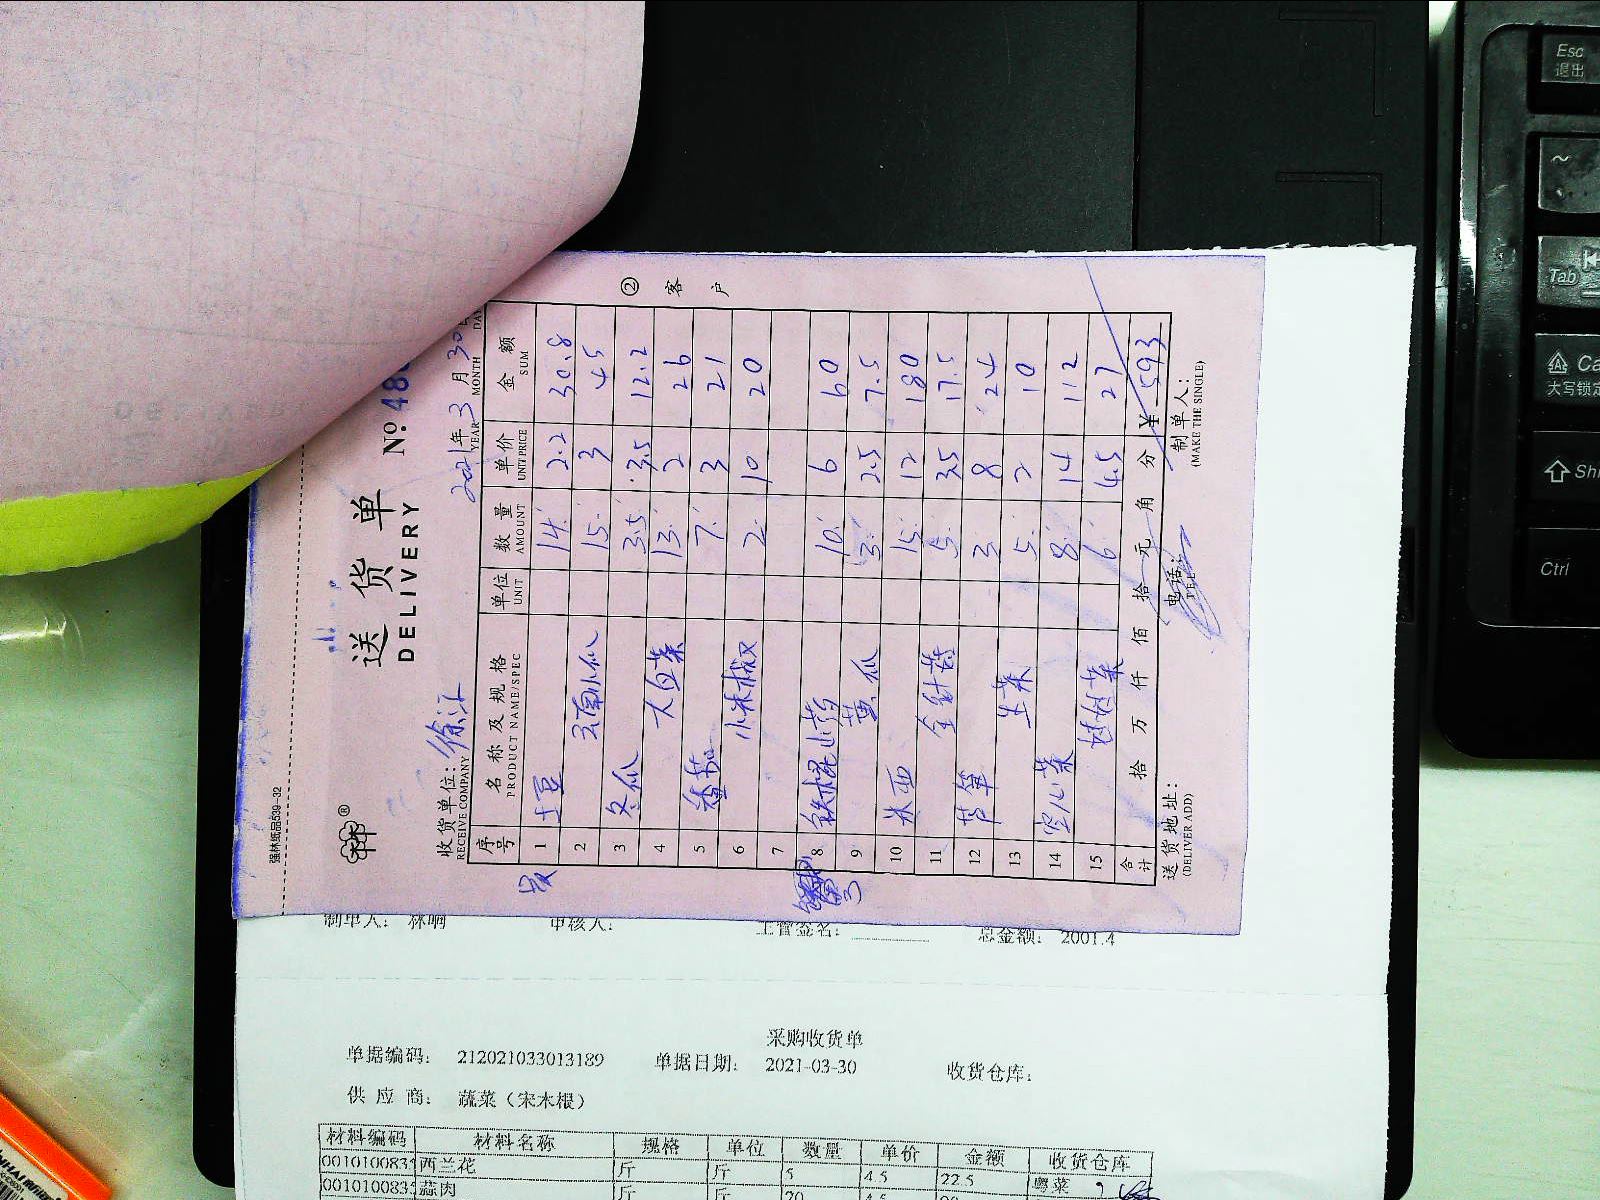 强林纸品539-32
送货单
DELIVERY
No. 48
收货单位：徐汇
RECEIVE COMPANY
2021年3月30
YEAR MONTH DA
序号 名称及规格 单位 数量 单价 金额
PRODUCT NAME/SPEC UNIT AMOUNT UNIT PRICE SUM
1 土豆 14 2.2 30.8
2 云南小瓜 15 3 45
3 冬瓜 3.5 3.5 12.2
4 大白菜 13 2 26
5 香菇 7 3 21
6 小米椒 2 10 20
7
8 铁棍山药 10 6 60
9 黄瓜 3 2.5 7.5
10 15 12 180
11 金针菇 5 3.5 17.5
12 芦笋 3 8 24
13 生菜 5 2 10
14 空心菜 8 14 112
15 娃娃菜 6 4.5 27
合计 拾 万 仟 佰 拾 元 角 分 ¥ 593
送货地址：
(DELIVER ADD)
电话：
制单人：
(MAKE THE SINGLE)
② 客户
制单人： 林响 审核人： 主管签名： 总金额： 2001.4
采购收货单
单据编码： 212021033013189 单据日期： 2021-03-30 收货仓库：
供应商： 蔬菜（宋木根）
材料编码 材料名称 规格 单位 数量 单价 金额 收货仓库
001010083 西兰花 斤 斤 5 4.5 22.5 粤菜
001010083 蒜肉 斤 斤 20 4.5
Esc
退出
~
Tab
Ca
大写锁定
Shi
Ctrl